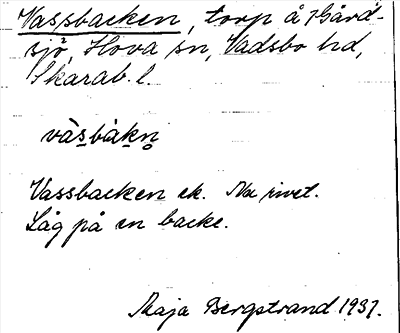 Vassbacken, torp å Hård-
sjö, Hova sn, Vadsbo hd,
Skarab. l.
vàsbàkn̥
Vassbacken ek. Nu rivet.
Låg på en backe.
Maja Bergstrand 1937.